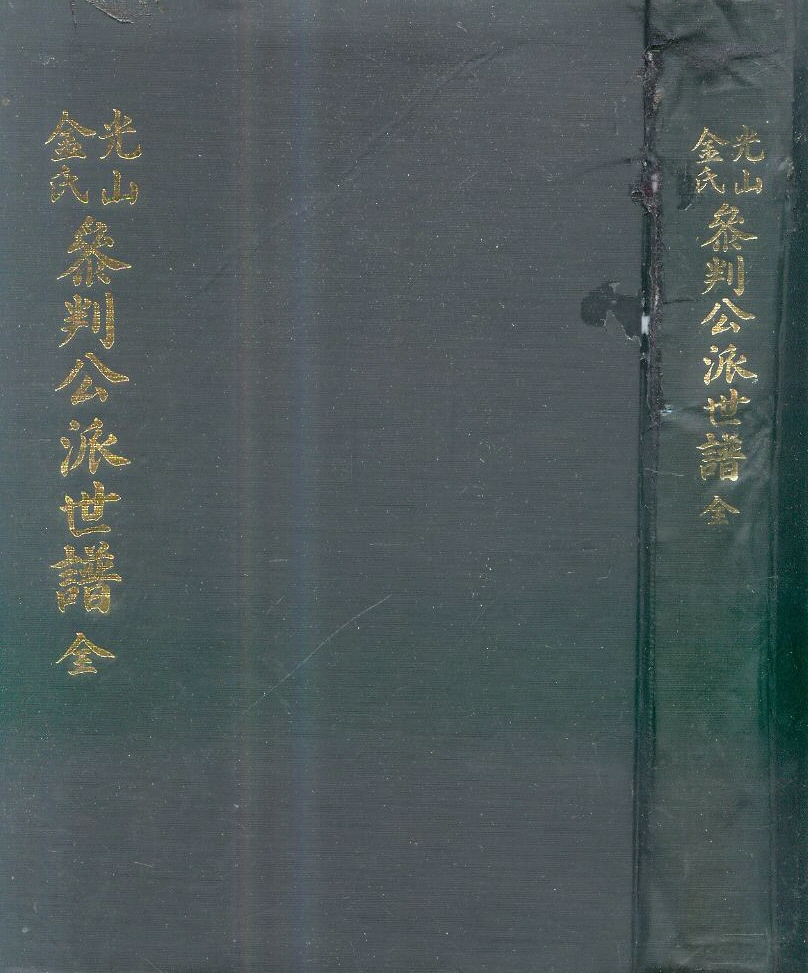 光山
金氏
參判公派世譜 全
光山
金氏
參判公派世譜 全